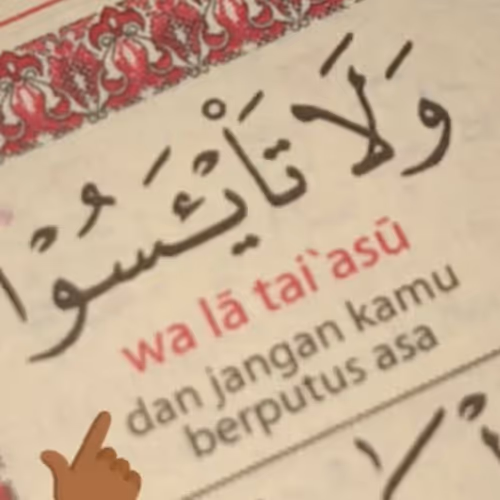 وَلَا تَا۟يْـَٔسُوْا
wa lā tai`asū
dan jangan kamu
berputus asa